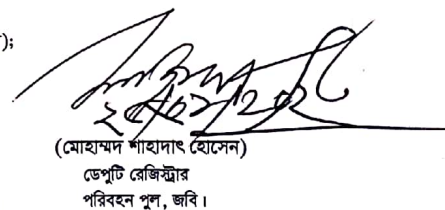 );
(মোহাম্মদ শাহাদাৎ হোসেন)
ডেপুটি রেজিস্ট্রার
পরিবহন পুল, জবি।